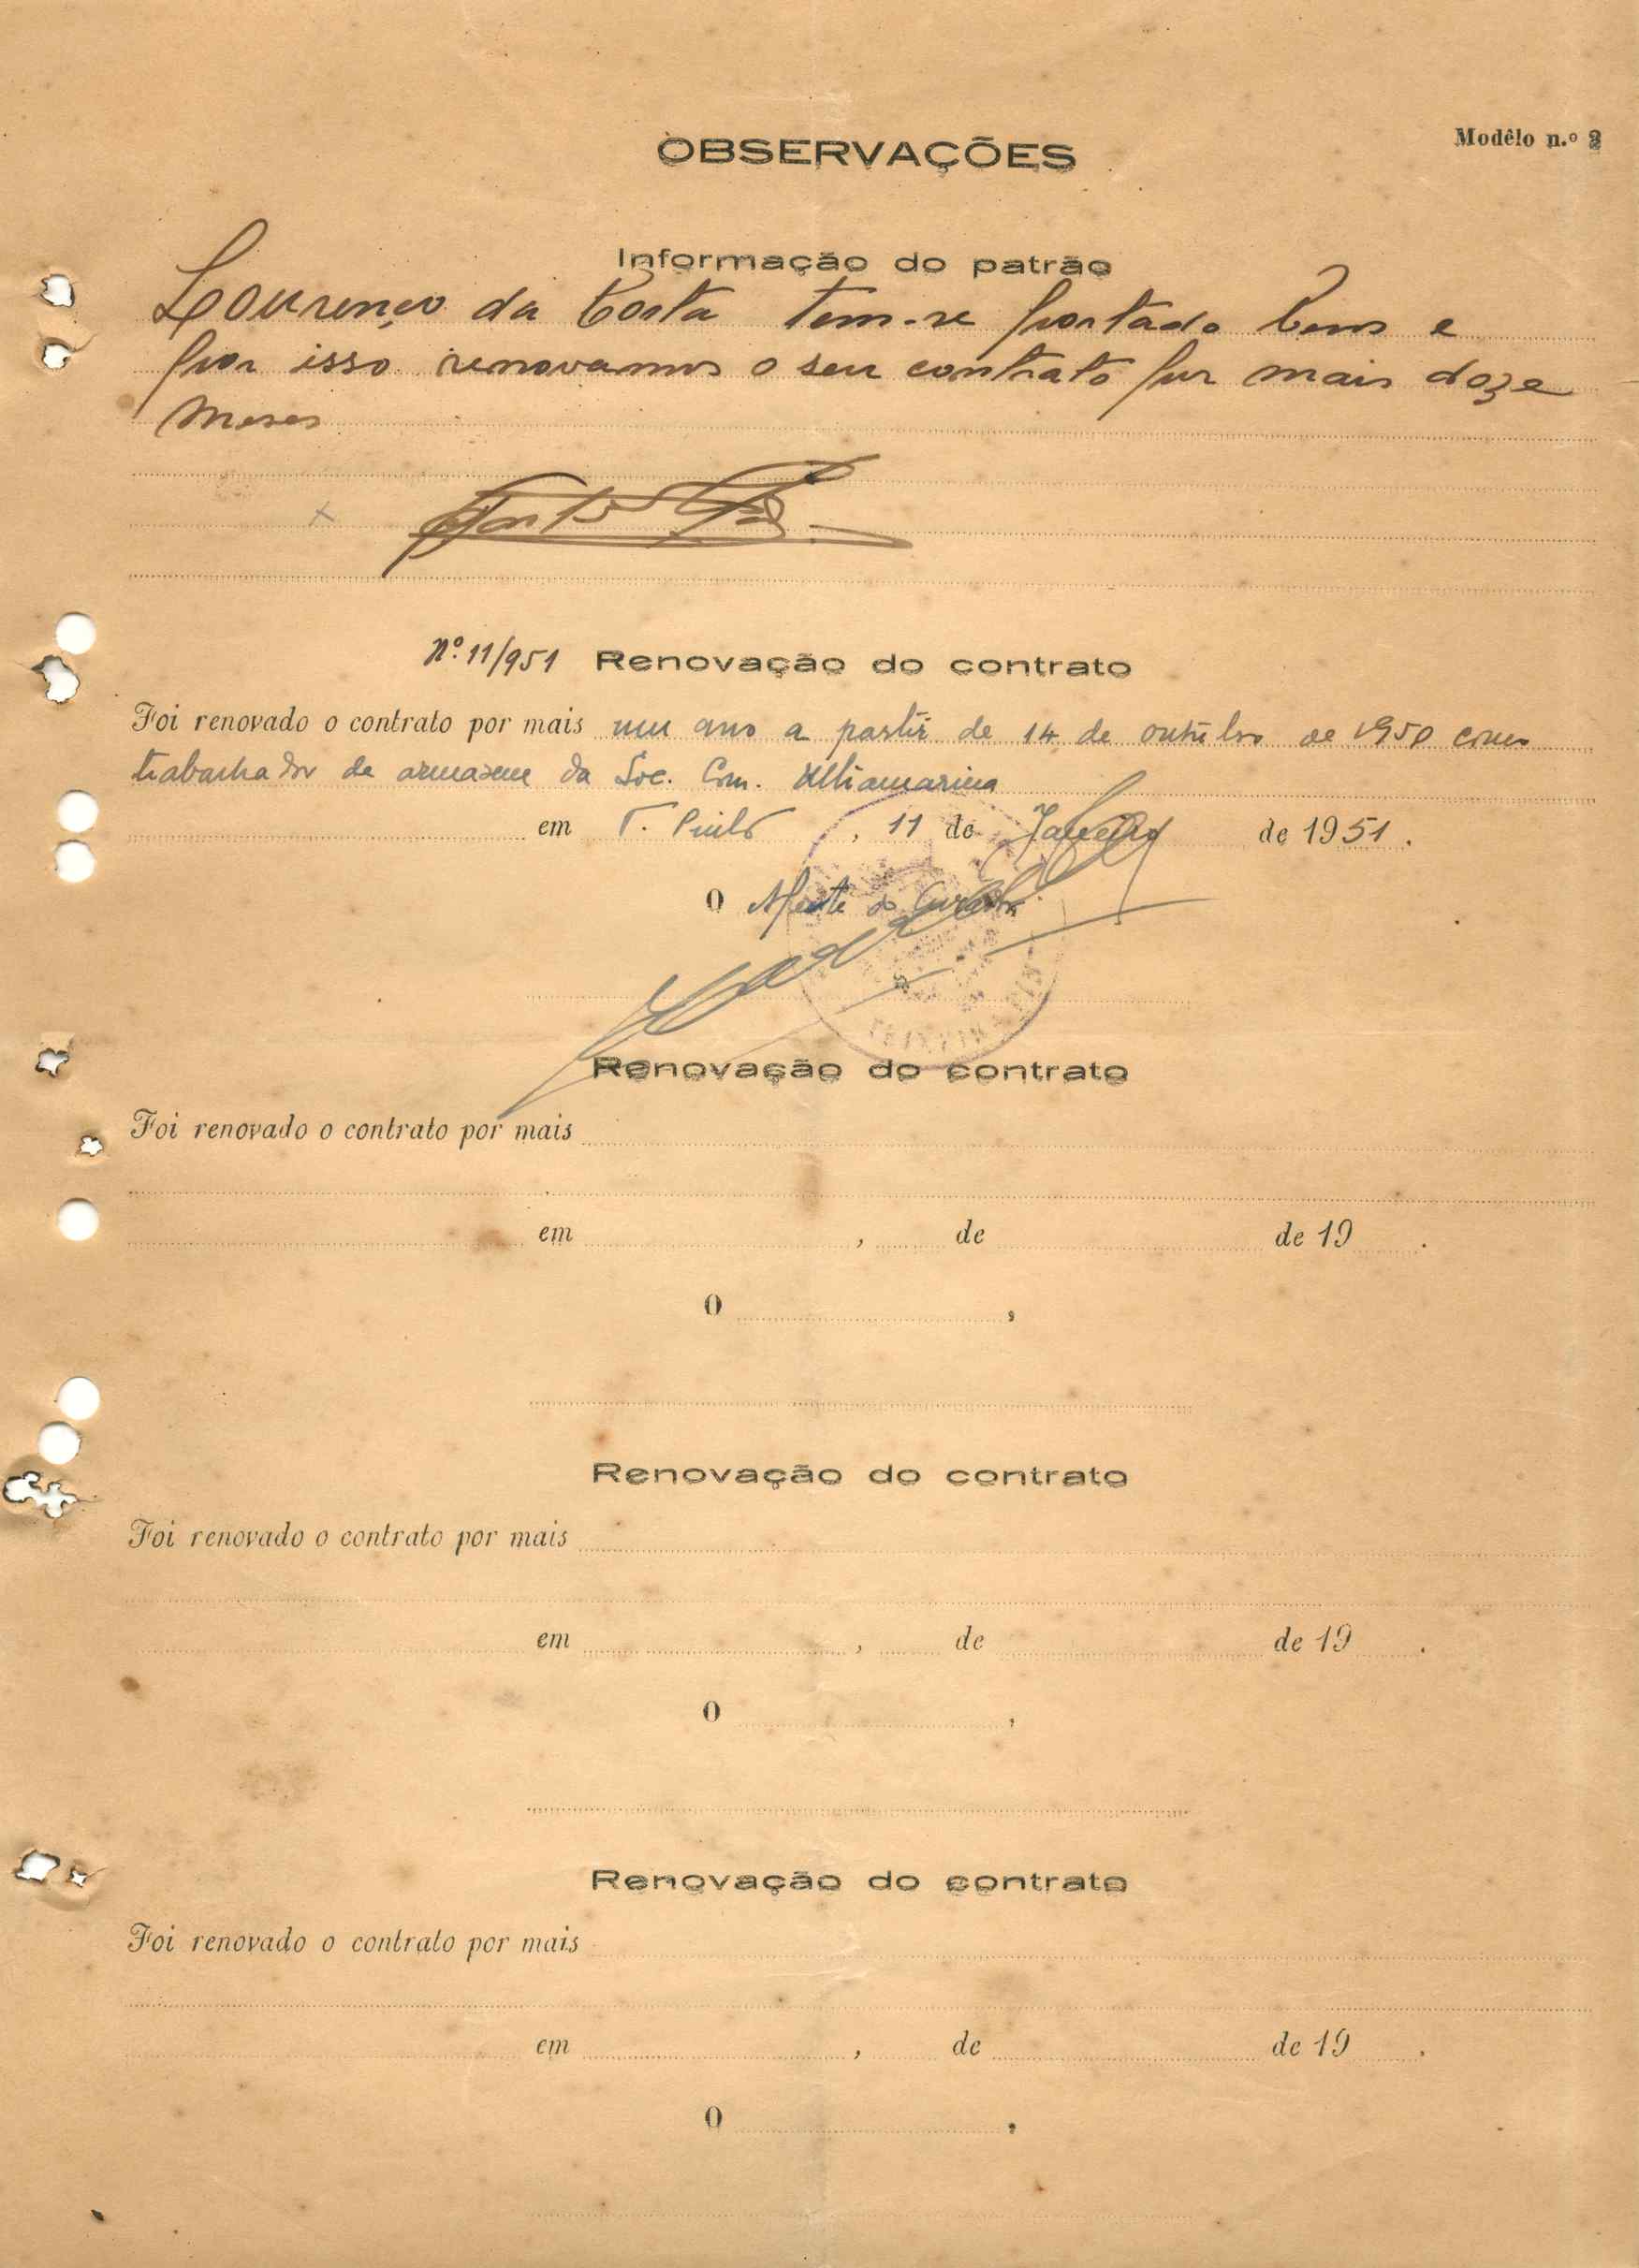 OBSERVAÇÕES
Modêlo n.º 2
Informação do patrão
Lourenço da Costa tem-se portado bem e
por isso renovamos o seu contrato por mais doze
meses
Nº 11/951 Renovação do contrato
Foi renovado o contrato por mais um ano a partir de 14 de outubro de 1950 como
trabalhador de armazem da Soc. Com. Ultramarina
em , 11 de Janeiro de 1951.
O Agente do Curador
Renovação do contrato
Foi renovado o contrato por mais
em , de de 19 .
O ,
Renovação do contrato
Foi renovado o contrato por mais
em , de de 19 .
O ,
Renovação do contrato
Foi renovado o contrato por mais
em , de de 19 .
O ,